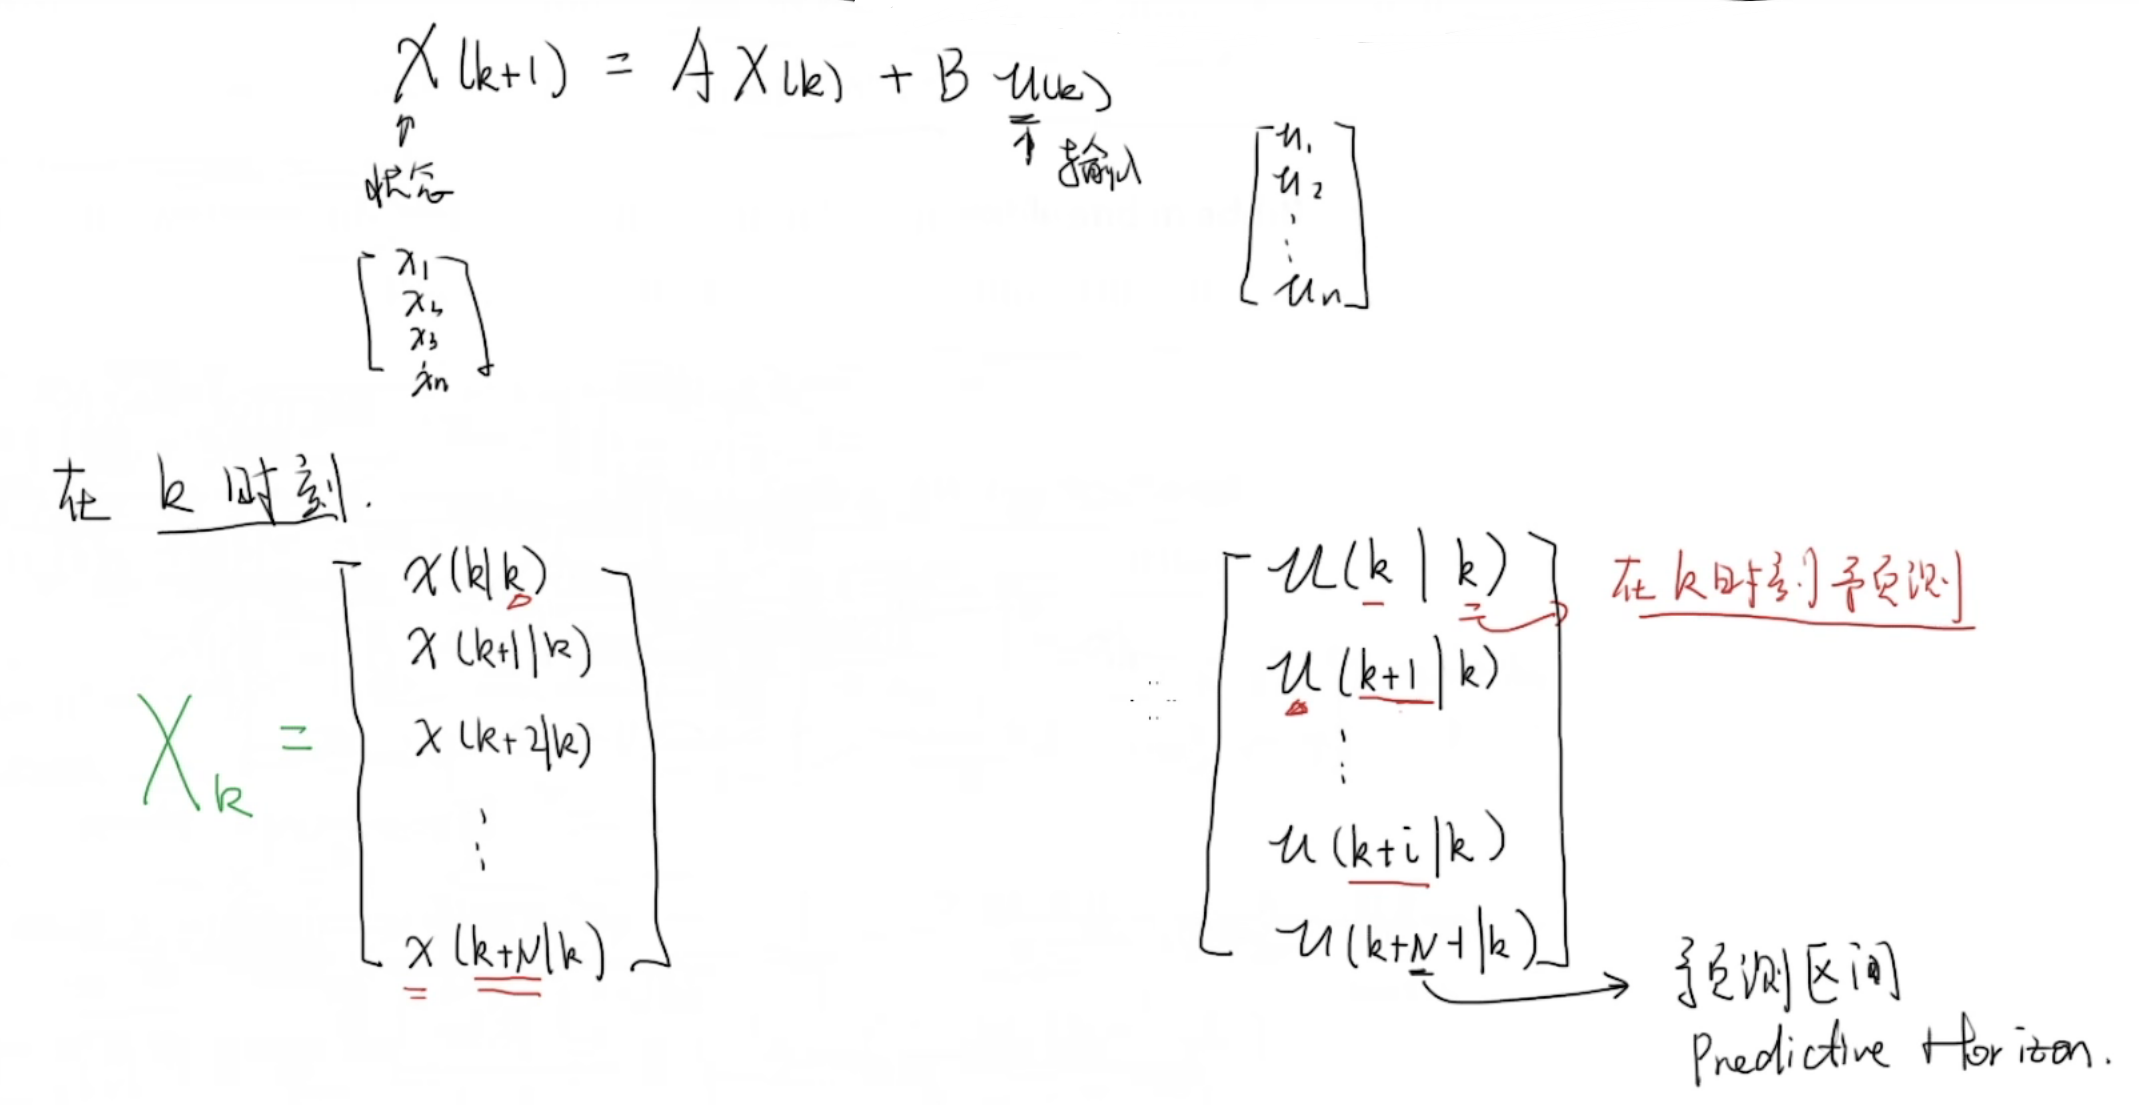 X(k+1) = A X(k) + B u(k)
↑
状态
↑ 输入
[x₁
x₂
x₃
⋮
xₙ]
[u₁
u₂
⋮
uₙ]
在 k 时刻.
X_k =
[x(k|k)
x(k+1|k)
x(k+2|k)
⋮
x(k+N|k)]
[u(k|k)
u(k+1|k)
⋮
u(k+i|k)
u(k+N-1|k)]
在 k 时刻预测
→ 预测区间
Predictive Horizon.